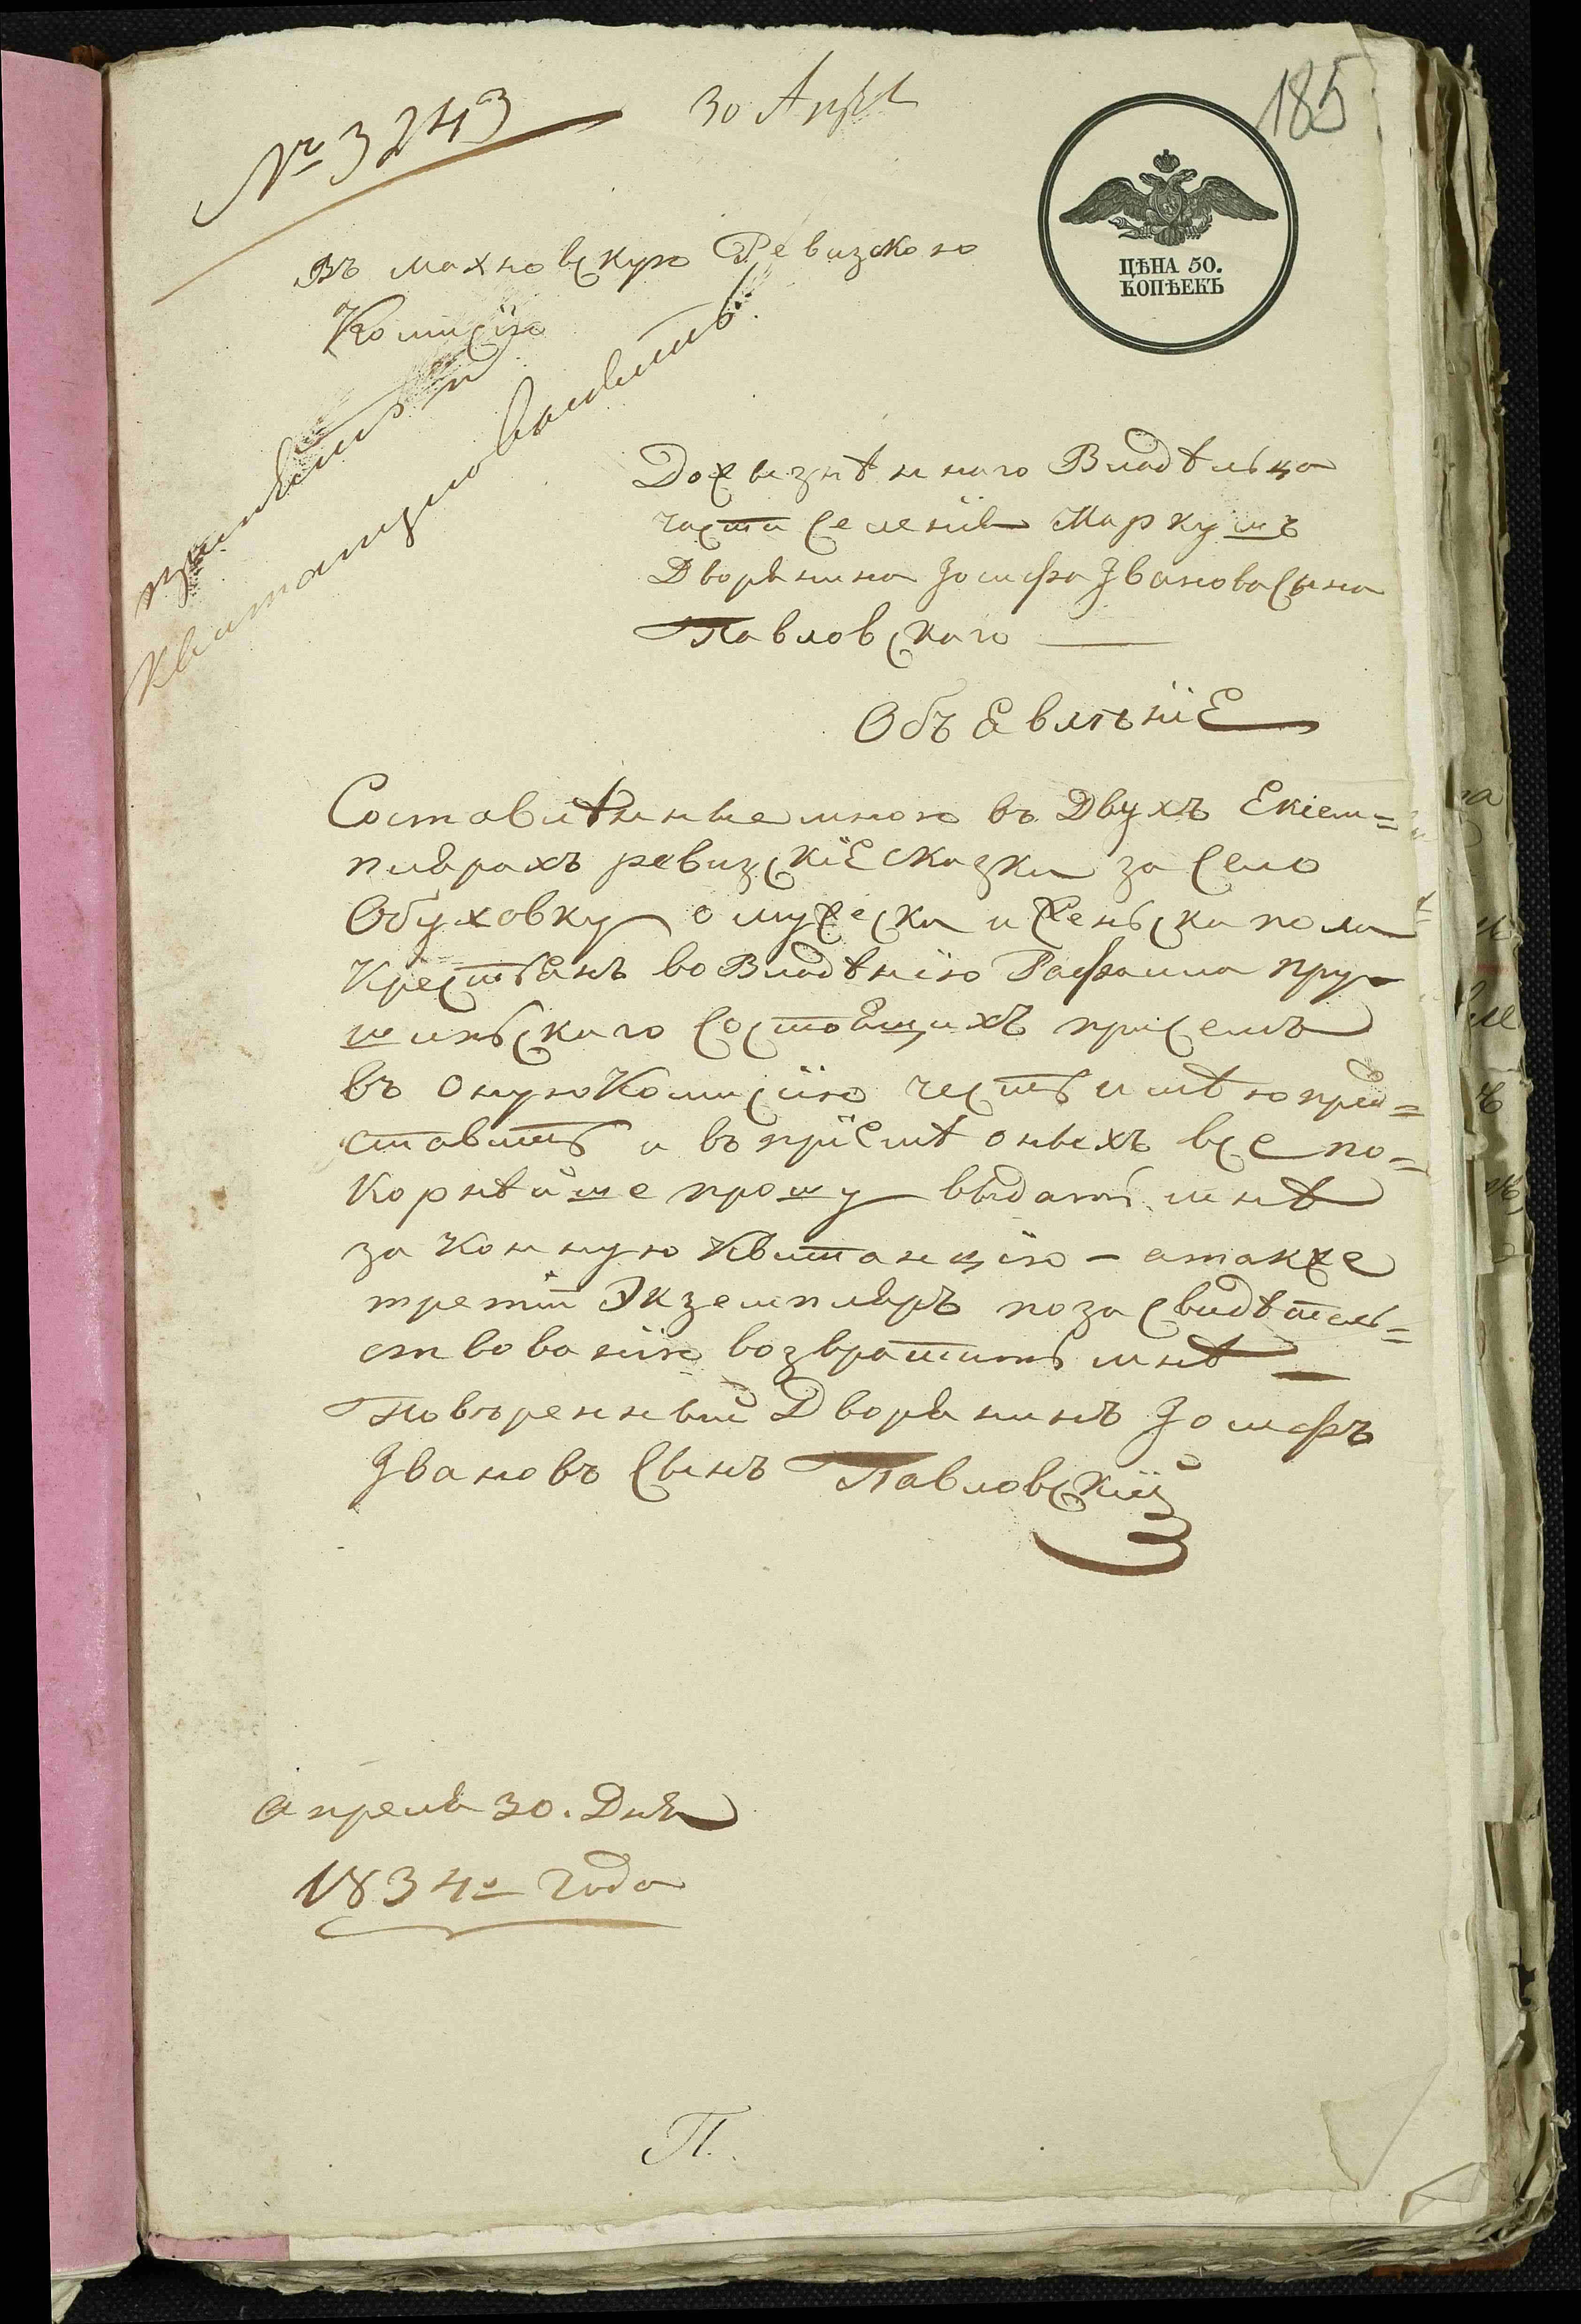 185
№ 3243
30 Апрел
ЦѢНА 50.
КОПѢЕКЪ
Въ махновскую Ревизскою
Комисію
принять и
квитанцию выдать
Дожызнѣннаго Владѣльца
части селенія Маркушъ
Дворянина Іосифа Іванова сына
Павловскаго
Объевлѣніе
Составлѣнные мною въ Двухъ Екзем=
плярахъ ревизскіе сказки за село
Обуховку о мужеска и женьска пола
Крестьянъ во Владѣнію Рафаила пру-
шиньскаго состоящихъ присемъ
въ оную Комисію честь имѣю прѣд=
ставить и въ пріемѣ оныхъ все по=
корнѣйше прошу выдать мнѣ
законную Квитанцію - а также
третій Экземпляръ по засвидѣтель=
ствованію возвратить мнѣ
Повѣренный Дворянинъ Іосифъ
Івановъ сынъ Павловскій
апреля 30. Дня
1834го года
П.